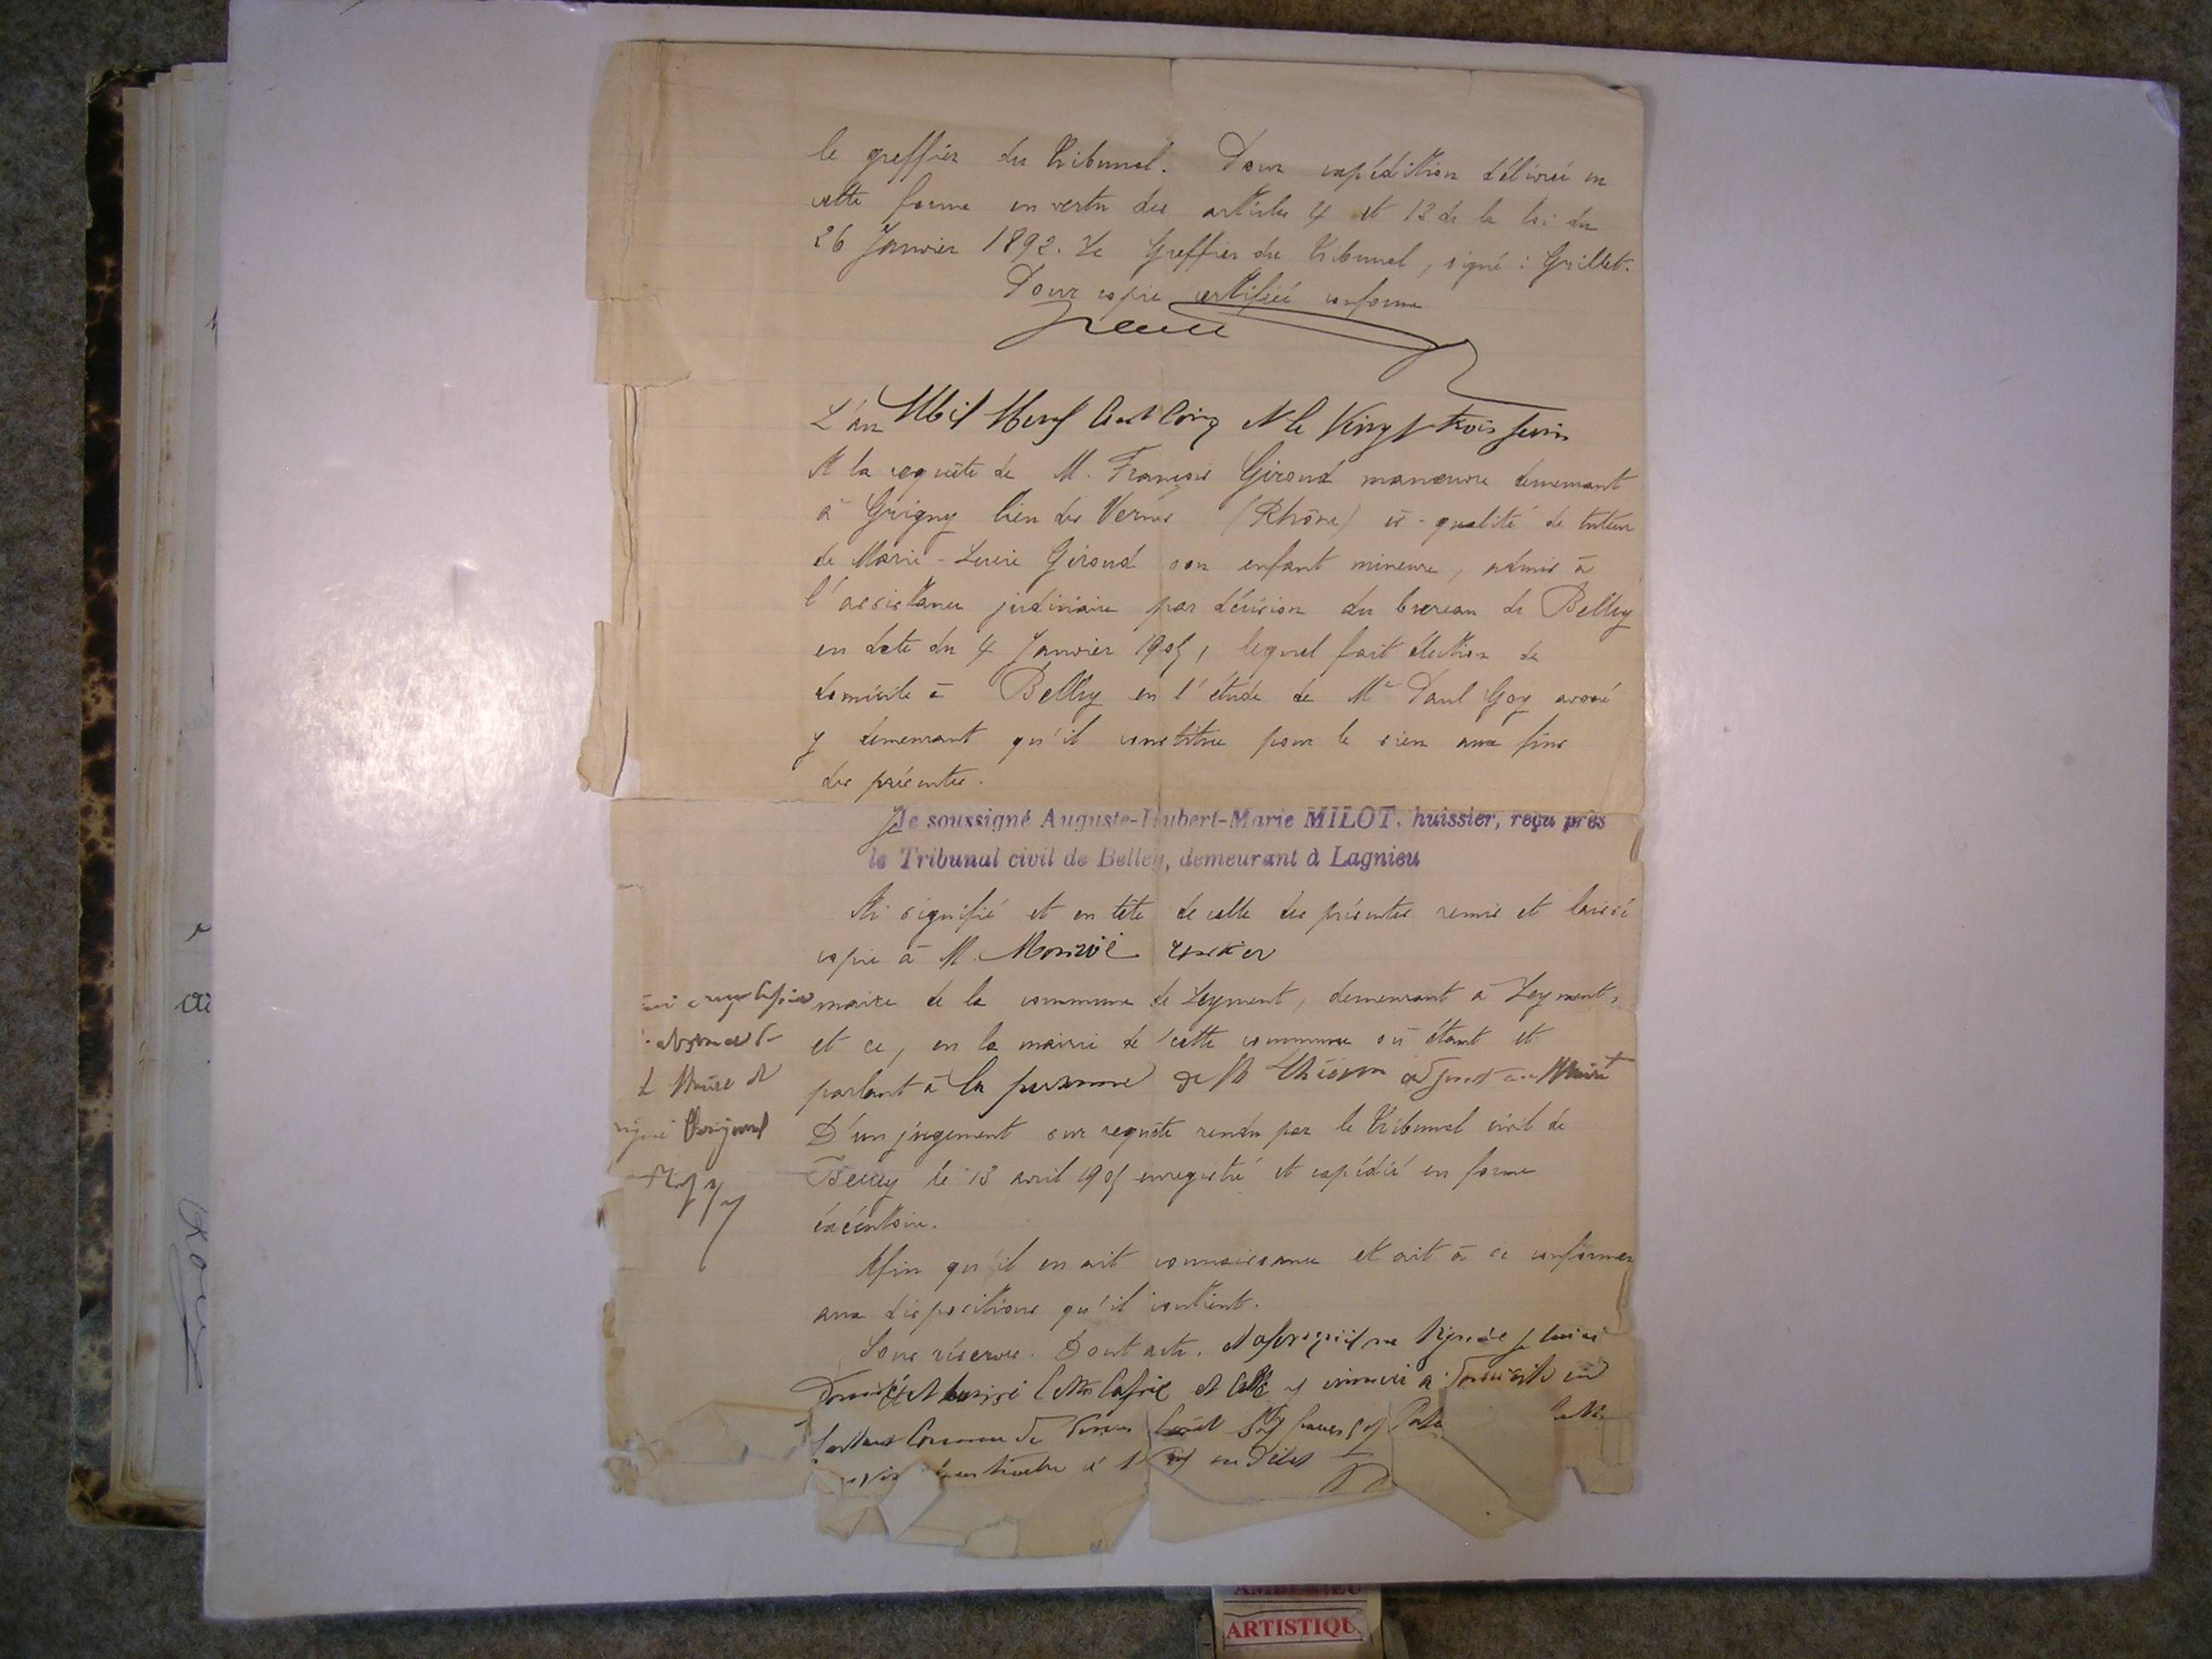 le greffier du Tribunal. Pour expédition délivrée en
cette forme en vertu des articles 4 et 13 de la loi du
26 Janvier 1892. Le Greffier du Tribunal, signé : Grillet.
Pour copie certifiée conforme
L'an Mil Neuf Cent Cinq et le Vingt trois Juin
A la requête de M. François Giroud manœuvre demeurant
à Grigny lieu des Vernes (Rhône) ès-qualité de tuteur
de Marie-Louise Giroud son enfant mineure, admis à
l'assistance judiciaire par décision du bureau de Belley
en date du 4 Janvier 1905, lequel fait élection de
domicile à Belley en l'étude de Me Paul Goy avoué
y demeurant qu'il constitue pour le sien aux fins
des présentes.
Je soussigné Auguste-Hubert-Marie MILOT, huissier, reçu près
le Tribunal civil de Belley, demeurant à Lagnieu
Ai signifié et en tête de celle des présentes remis et laissé
copie à M. rentier
maire de la commune de Leyment, demeurant à Leyment,
et ce, en la mairie de cette commune où étant et
parlant à la personne de M adjoint au Maire
D'un jugement sur requête rendu par le Tribunal civil de
Belley le 13 avril 1905 enregistré et expédié en forme
exécutoire.
Afin qu'il en ait connaissance et ait à se conformer
aux dispositions qu'il contient.
Sous réserves. Dont acte.
qui a reçu copie
absence
le Maire et
signé l'original
ARTISTIQU